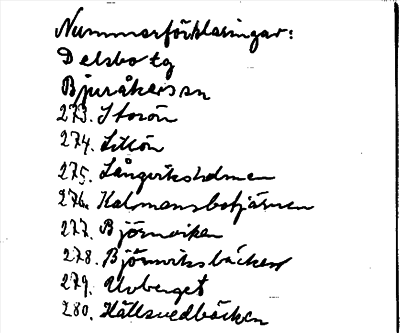 Nummerförklaringar:
Delsbo tg
Bjuråkers sn
273. Storön
274. Lillön
275. Långviksholmen
276. Kalmansbotjärnen
277. Björnviken
278. Björnviksbäcken
279. Uvberget
280. Hållsvedbäcken